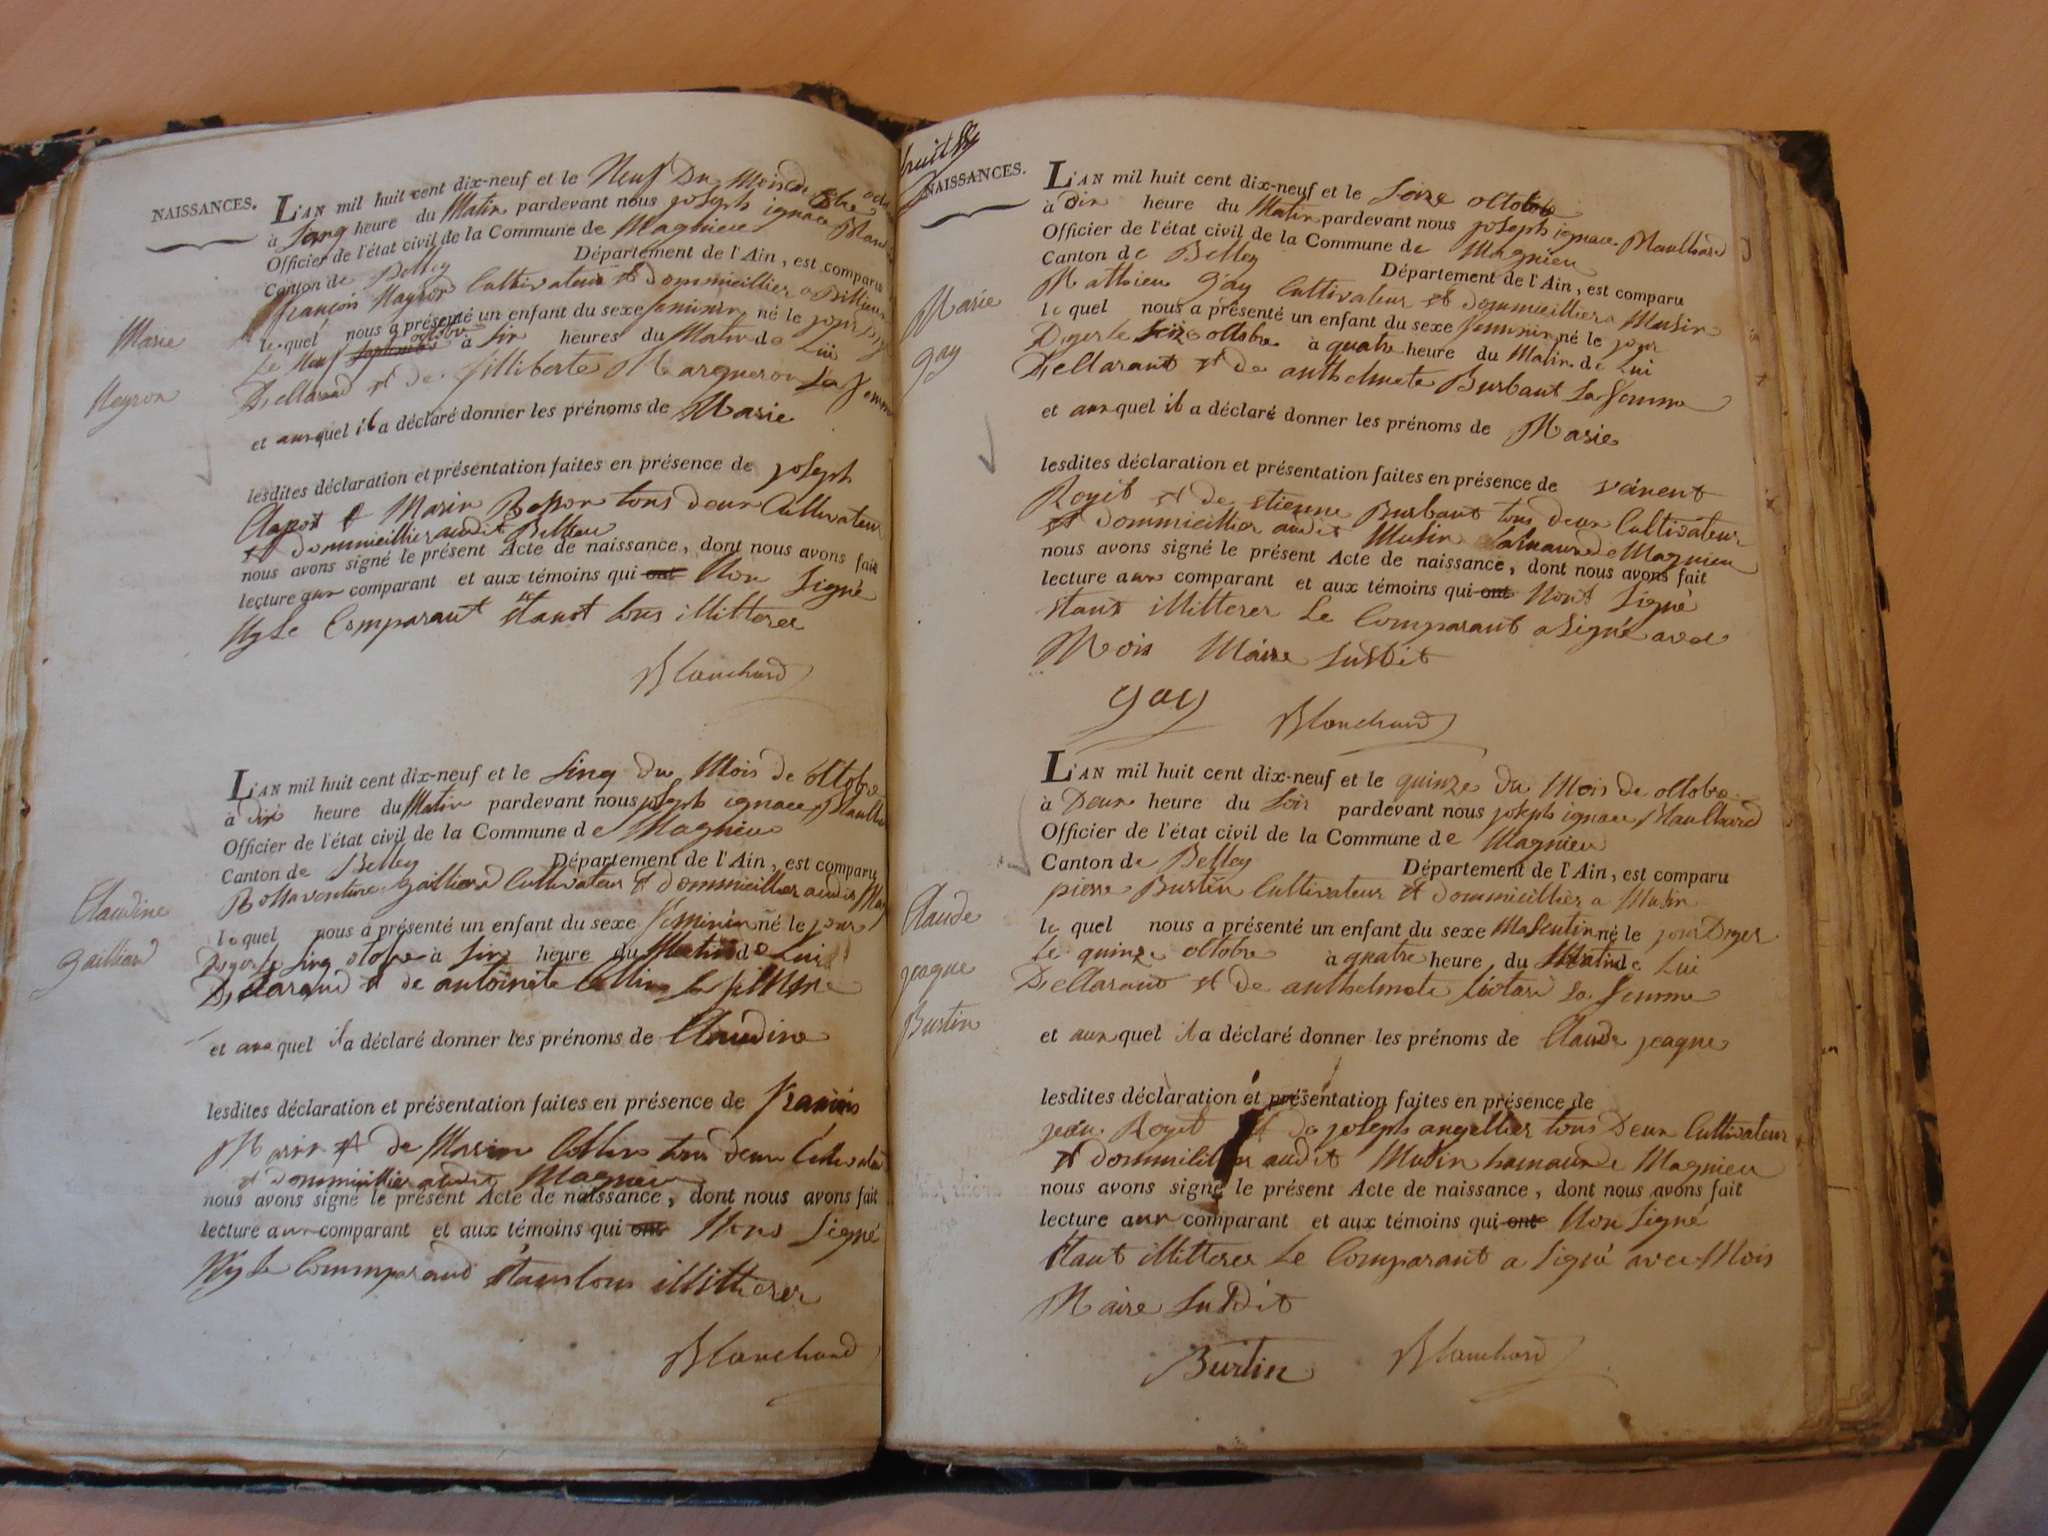 NAISSANCES.
L'AN mil huit cent dix-neuf et le Neuf Du Mois de
à heure du Matin pardevant nous joseph ignace
Officier de l'état civil de la Commune de Magnieu
Canton de Belley Département de l'Ain, est comparu
françois Neyron Cultivateur et dommicillier a Billieu
lequel nous a présenté un enfant du sexe feminin né le jour
Le Neuf septembre octobre à six heures du Matin de Lui
Dellarand et de filliberte Margueron La femme
et auxquel il a déclaré donner les prénoms de Marie
lesdites déclaration et présentation faites en présence de joseph
Clapot et Marin Besson tous deux Cultivateur
et dommicillier audit Billieu
nous avons signé le présent Acte de naissance, dont nous avons fait
lecture aux comparant et aux témoins qui ont Non Signé
Ny Le Comparant Etant tous illitterer
Blanchard
Marie
Neyron
L'AN mil huit cent dix-neuf et le Sinq du Mois de octobre
à dix heure du Matin pardevant nous joseph ignace
Officier de l'état civil de la Commune de Magnieu
Canton de Belley Département de l'Ain, est comparu
Bonaventure gailliard Cultivateur et dommicillier audit
lequel nous a présenté un enfant du sexe feminin né le jour
Dyer Le Sinq otobre à six heure du Matin de Lui
Dellarand et de antoinete Collin
et aux quel il a déclaré donner les prénoms de Claudine
lesdites déclaration et présentation faites en présence de françois
Marin et de Marin Collin tous deux Cultivateur
et dommicillier audit Magnieu
nous avons signé le présent Acte de naissance, dont nous avons fait
lecture aux comparant et aux témoins qui ont Non Signé
Ny Le Commparand Etans tous illitterer
Blanchard
Claudine
gailliard
huit
NAISSANCES.
L'AN mil huit cent dix-neuf et le Seize octobre
à dix heure du Matin pardevant nous joseph ignace Blanchard
Officier de l'état civil de la Commune de Magnieu
Canton de Belley Département de l'Ain, est comparu
Mathieu gay Cultivateur et dommicillier a Musin
le quel nous a présenté un enfant du sexe feminin né le jour
Dyer le Seize octobre à quatre heure du Matin de Lui
Dellarant et de anthelmete Burbant La femme
et aux quel il a déclaré donner les prénoms de Marie
lesdites déclaration et présentation faites en présence de vincent
Royit et de etienne Burbant tous deux Cultivateur
et dommicillier audit Musin hamaux de Magnieu
nous avons signé le présent Acte de naissance, dont nous avons fait
lecture aux comparant et aux témoins qui ont Nont Signé
Etant illitterer Le Comparant a Signé avec
Mois Maire Susdit
gay
Blanchard
Marie
gay
L'AN mil huit cent dix-neuf et le quinze du Mois de octobre
à Deux heure du Soir pardevant nous joseph ignace Blanchard
Officier de l'état civil de la Commune de Magnieu
Canton de Belley Département de l'Ain, est comparu
pierre Burtin Cultivateur et dommicillier a Musin
le quel nous a présenté un enfant du sexe Masculin né le jour Dyer
Le quinze octobre à quatre heure du Matin de Lui
Dellarand et de anthelmete La femme
et aux quel il a déclaré donner les prénoms de Claude jeaque
lesdites déclaration et présentation faites en présence de
jean Royit et de joseph angellier tous Deux Cultivateur
et dommicillier audit Musin hamaux de Magnieu
nous avons signé le présent Acte de naissance, dont nous avons fait
lecture aux comparant et aux témoins qui ont Non Signé
Etant illitterer Le Comparant a Signé avec Mois
Maire Susdit
Burtin
Blanchard
Claude
jeaque
Burtin